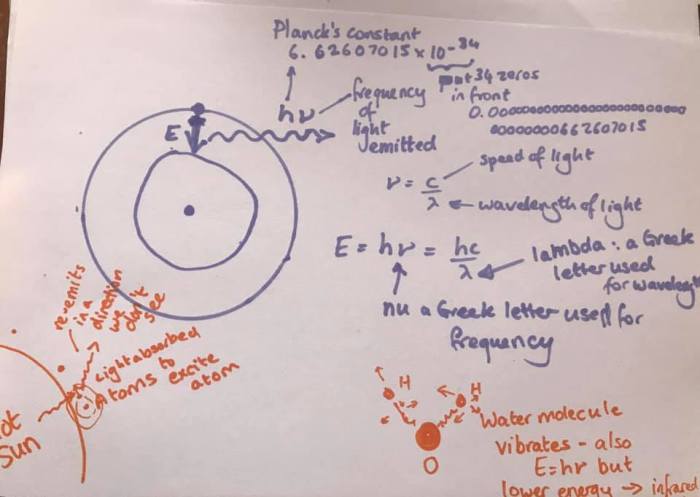 Planck's constant
6.62607015 x 10⁻³⁴
put 34 zeros
in front
hν
frequency
of
light
emitted
E
speed of light
ν = c/λ
wavelength of light
E = hν = hc/λ
lambda: a Greek
letter used
for wavelength
nu a Greek letter used for
frequency
re-emits
in a
direction
we don't
see
Light absorbed
Atoms to excite
atom
Sun
H
H
O
Water molecule
vibrates - also
E=hν but
lower energy → infrared